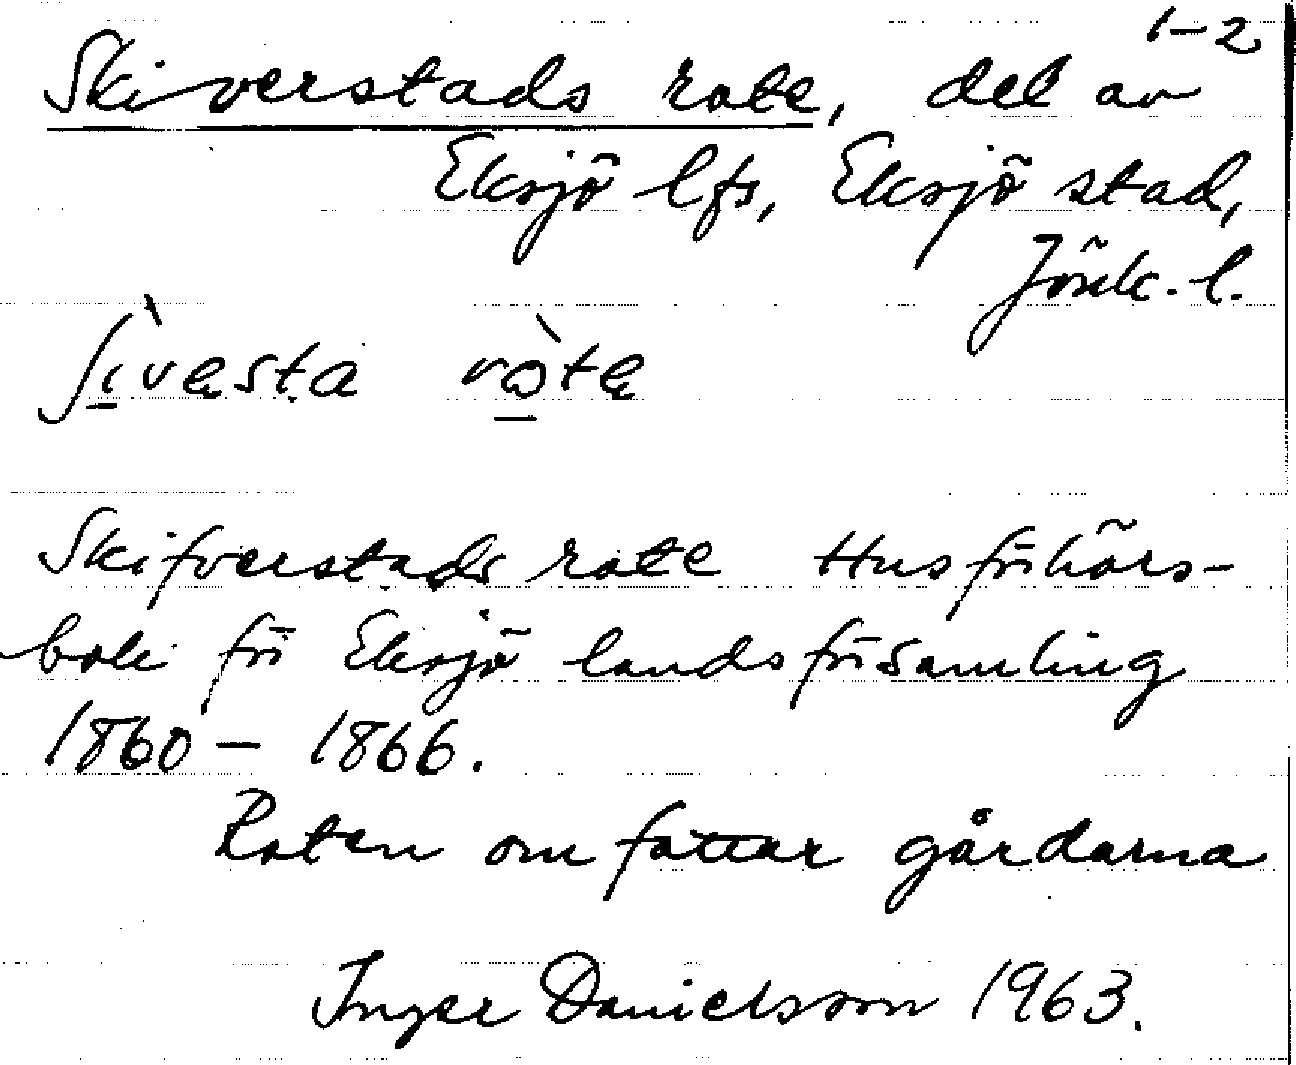 1-2
Skiverstads rote, del av
Eksjö lfs, Eksjö stad,
Jönk. l.
ʃì̠vęsta rò̠tę
Skifverstads rote Husförhörs-
bok för Eksjö landsförsamling
1860 – 1866.
Roten omfattar gårdarna
Inger Danielsson 1963.